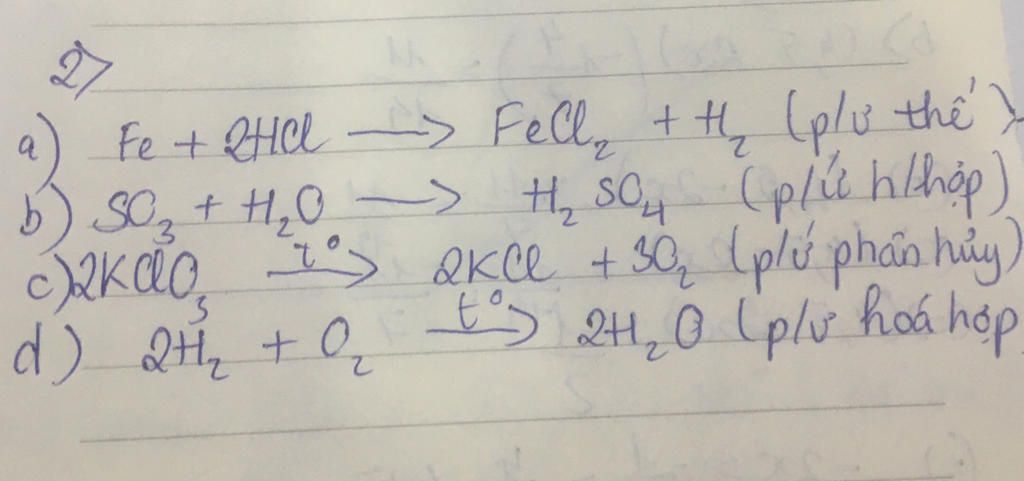 2>
a) Fe + 2HCl ⟶ FeCl₂ + H₂ (p/ư thế)
b) SO₃ + H₂O ⟶ H₂SO₄ (p/ứ h/hợp)
c) 2KClO₃ t° ⟶ 2KCl + 3O₂ (p/ứ phân hủy)
d) 2H₂ + O₂ t° ⟶ 2H₂O (p/ư hoá hợp